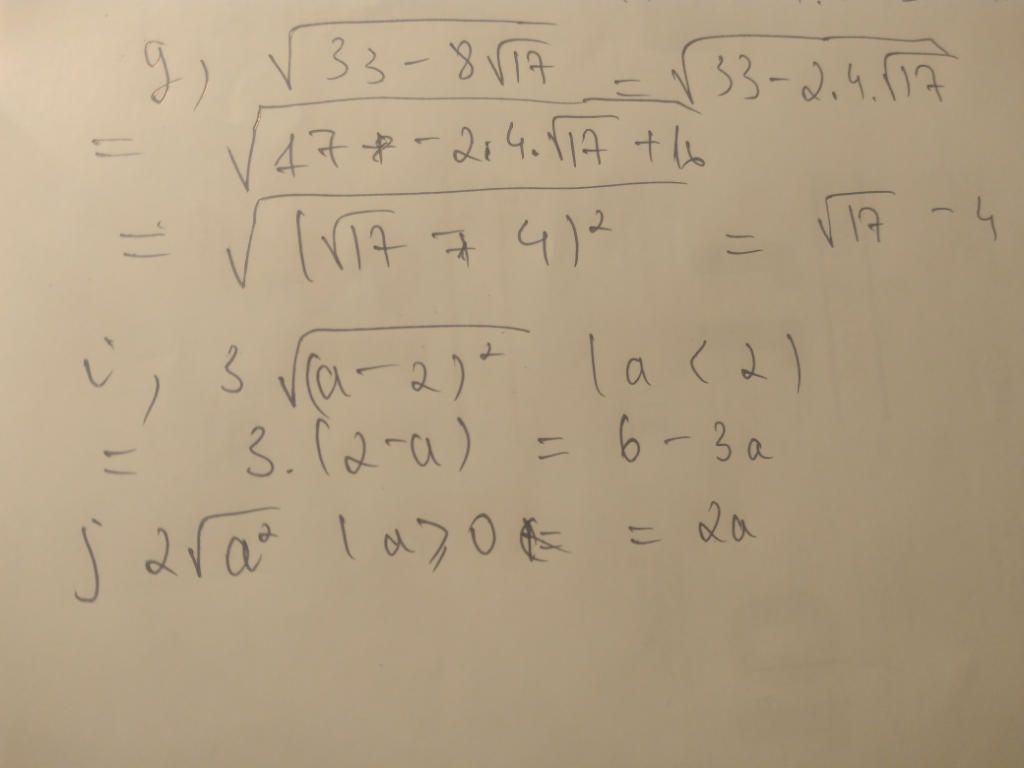 g, √(33 - 8√17) = √(33 - 2.4.√17)
= √(17 - 2.4.√17 + 16)
= √((√17 - 4)²) = √17 - 4
i, 3√((a - 2)²) (a < 2)
= 3.(2-a) = 6 - 3a
j 2√(a²) (a ⩾ 0 = 2a